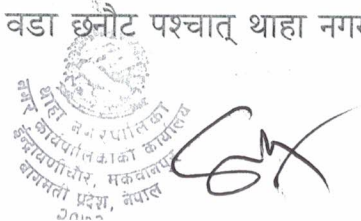 वडा छनौट पश्चात् थाहा नगर
थाहा नगरपालिका
नगर कार्यपालिकाको कार्यालय
मकवानपुर
बागमती प्रदेश, नेपाल